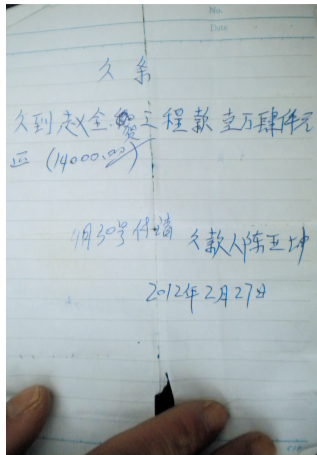 No.
Date
欠条
欠到赵全贺工程款壹万肆仟元
正(14000.00)
4月30号付清 欠款人陈正坤
2012年2月27日